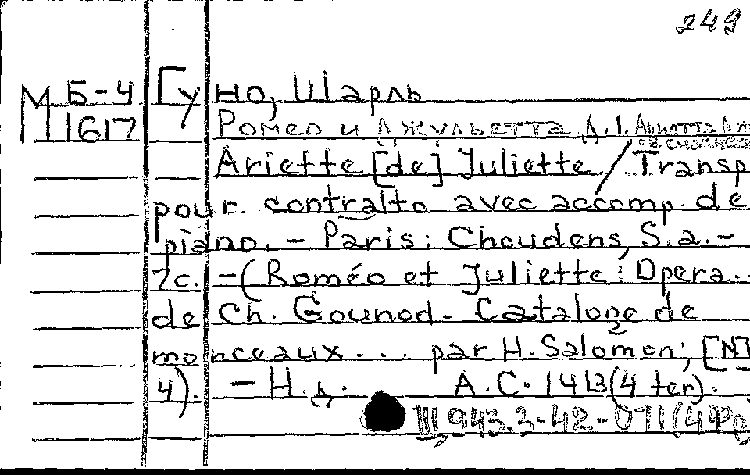 249
М Б-4 Гуно, Шарль
1617 Ромео и Джульетта Д.1.
Ariette [de] Juliette / Transp
pour contralto avec accomp. de
piano. - Paris: Choudens, S.a.-
7c. - (Roméo et Juliette: Opera..
de Ch. Gounod. Catalogе de
morceaux... par H. Salomon; [N]
4). - Н.д. А.С. 1413 (4 ter).
III,943.3-42.-071(449)